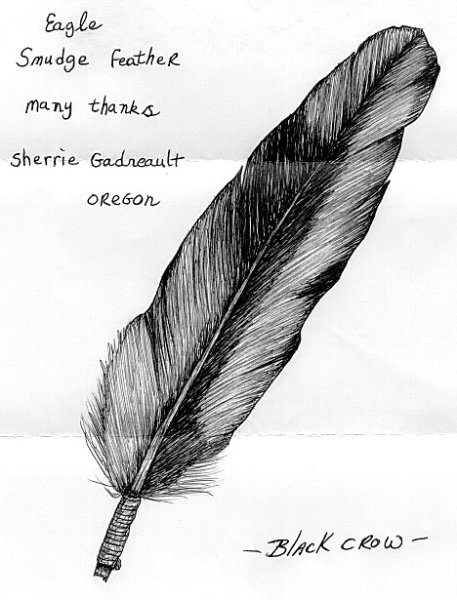 Eagle
Smudge Feather
many thanks
Sherrie Gadreault
OREGON
- Black Crow -